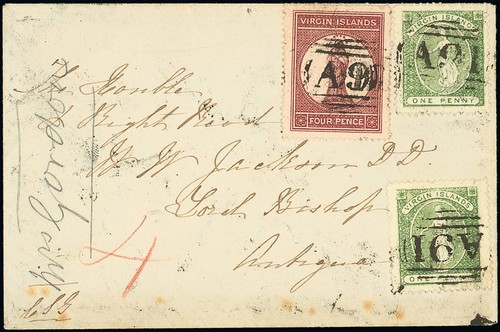 VIRGIN ISLANDS
FOUR PENCE
A91
VIRGIN ISLANDS
ONE PENNY
A91
VIRGIN ISLANDS
A91
Right Revd
W. W. Jackson D.D.
Lord Bishop
Antigua
4